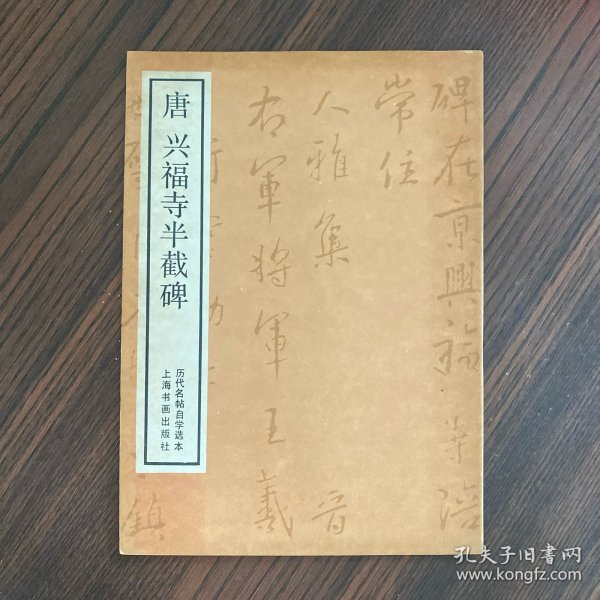 唐 兴福寺半截碑
历代名帖自学选本
上海书画出版社
碑在京興福寺陪
常住
人雅集 晋
右軍將軍王羲
鎮
孔夫子旧书网
www.kongfz.com